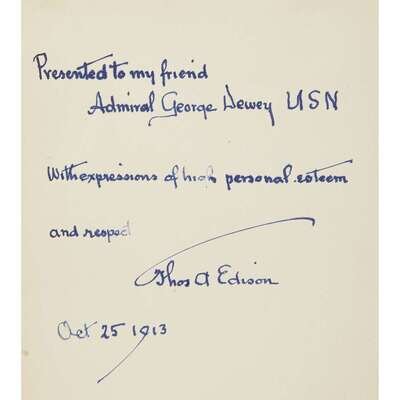 Presented to my friend
Admiral George Dewey USN
With expressions of high personal esteem
and respect
Thos A Edison
Oct 25 1913